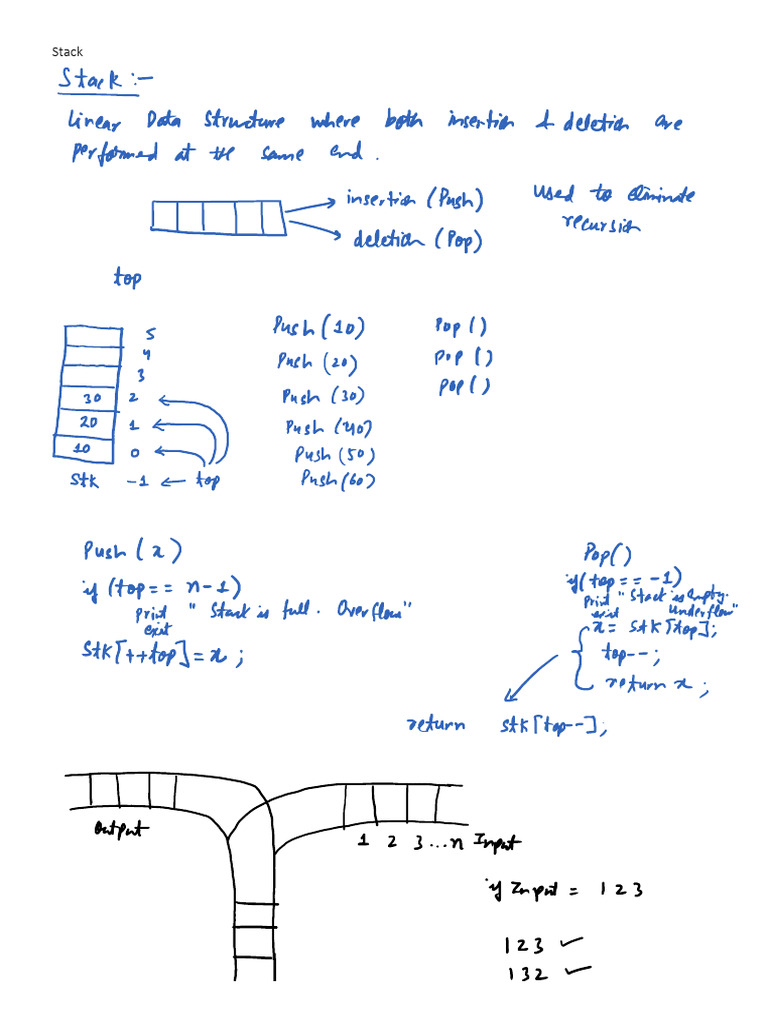 Stack
Stack :-
Linear Data Structure where both insertion & deletion are
performed at the same end.
insertion (Push)
deletion (Pop)
Used to eliminate
recursion
top
5
4
3
30 2
20 1
10 0
Stk -1 ← top
Push (10)
Push (20)
Push (30)
Push (40)
Push (50)
Push (60)
Pop ()
pop ()
pop ()
Push (x)
if (top == n-1)
print "Stack is full. Overflow"
exit
Stk[++top] = x ;
Pop()
if (top == -1)
print "Stack is Empty.
exit Underflow"
x = Stk[top];
top--;
return x ;
return Stk[top--];
Output
1 2 3 ... n Input
if Input = 1 2 3
1 2 3 ✓
1 3 2 ✓